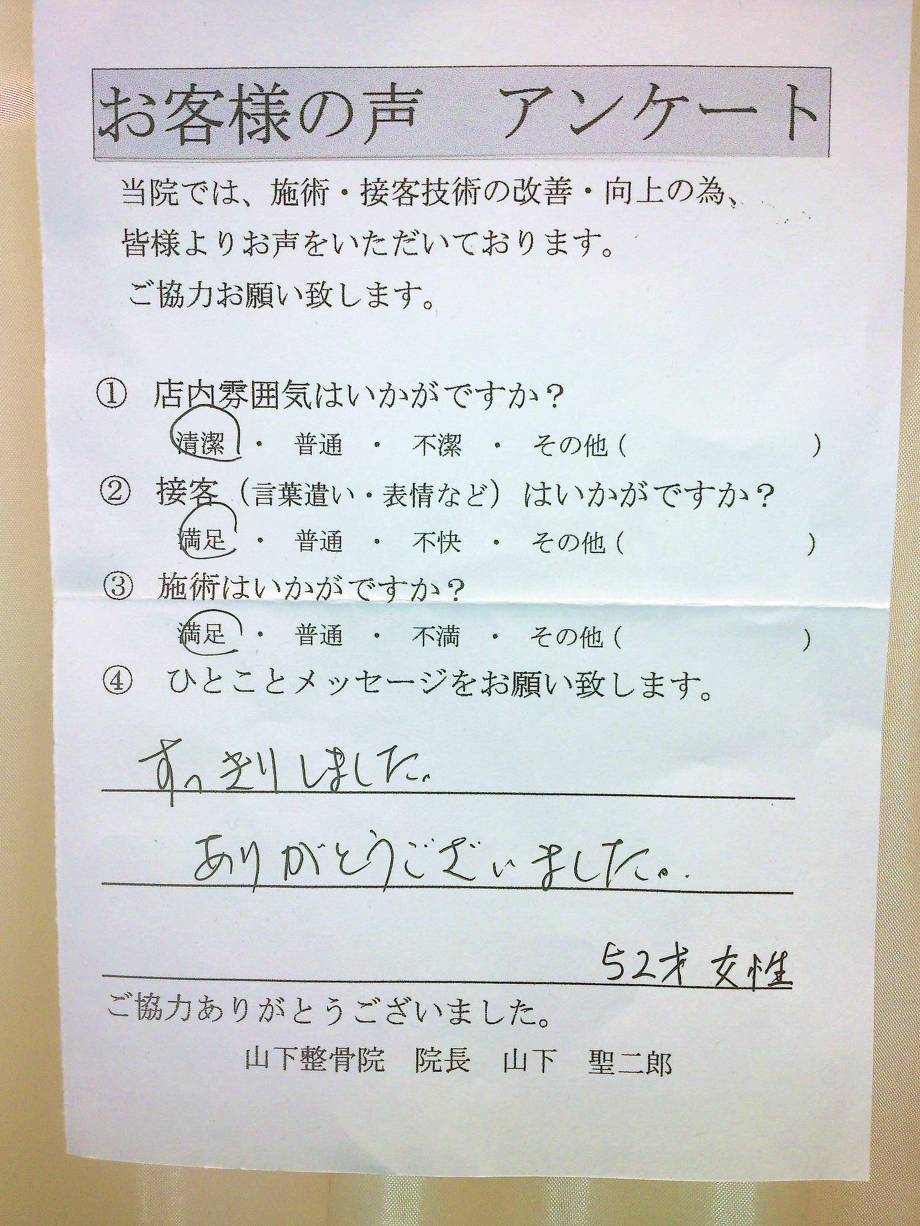 お客様の声　アンケート
当院では、施術・接客技術の改善・向上の為、
皆様よりお声をいただいております。
ご協力お願い致します。
① 店内雰囲気はいかがですか？
清潔 ・ 普通 ・ 不潔 ・ その他（　　　　　　　）
② 接客（言葉遣い・表情など）はいかがですか？
満足 ・ 普通 ・ 不快 ・ その他（　　　　　　　）
③ 施術はいかがですか？
満足 ・ 普通 ・ 不満 ・ その他（　　　　　　　）
④ ひとことメッセージをお願い致します。
すっきりしました。
ありがとうございました。
52才 女性
ご協力ありがとうございました。
山下整骨院　院長　山下　聖二郎